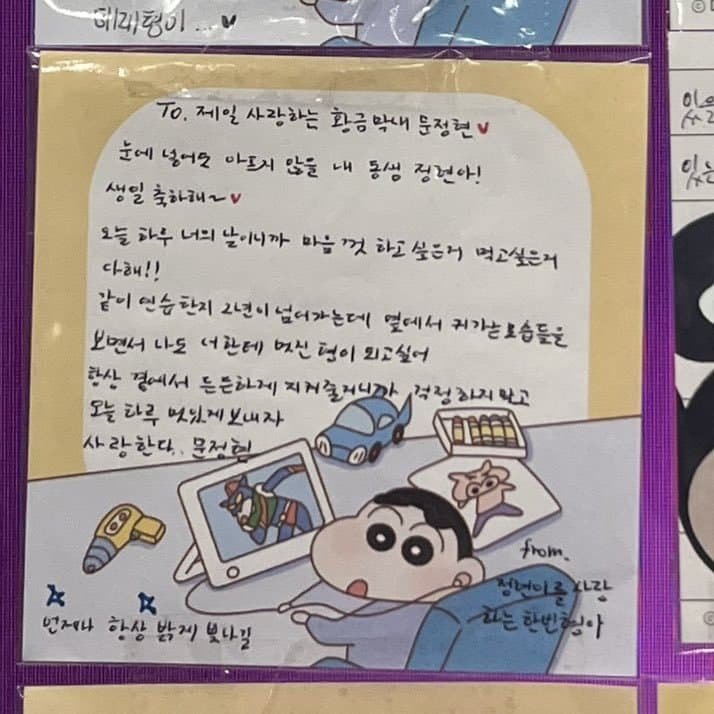 태래형이...♥
To. 제일 사랑하는 황금막내 문정현♥
눈에 넣어도 아프지 않을 내 동생 정현아!
생일 축하해~♥
오늘 하루 너의 날이니까 마음껏 하고싶은거 먹고싶은거
다해!!
같이 연습한지 2년이 넘어가는데 옆에서 커가는모습들을
보면서 나도 너한테 멋진 형이 되고싶어
항상 곁에서 든든하게 지켜줄거니까 걱정하지말고
오늘 하루 멋있게보내자
사랑한다.. 문정현
from.
정현이를 사랑
하는 한빈형아
언제나 항상 밝게 빛나길
있을
있는